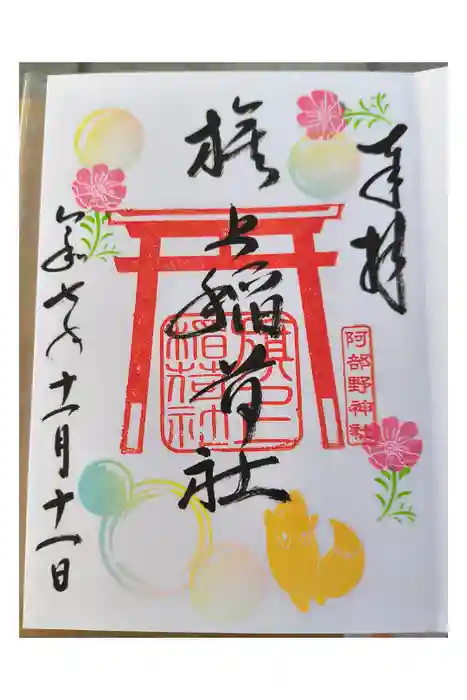 奉拝
旗上稲荷社
旗上稲荷神社
阿部野神社
令和七年十一月十一日